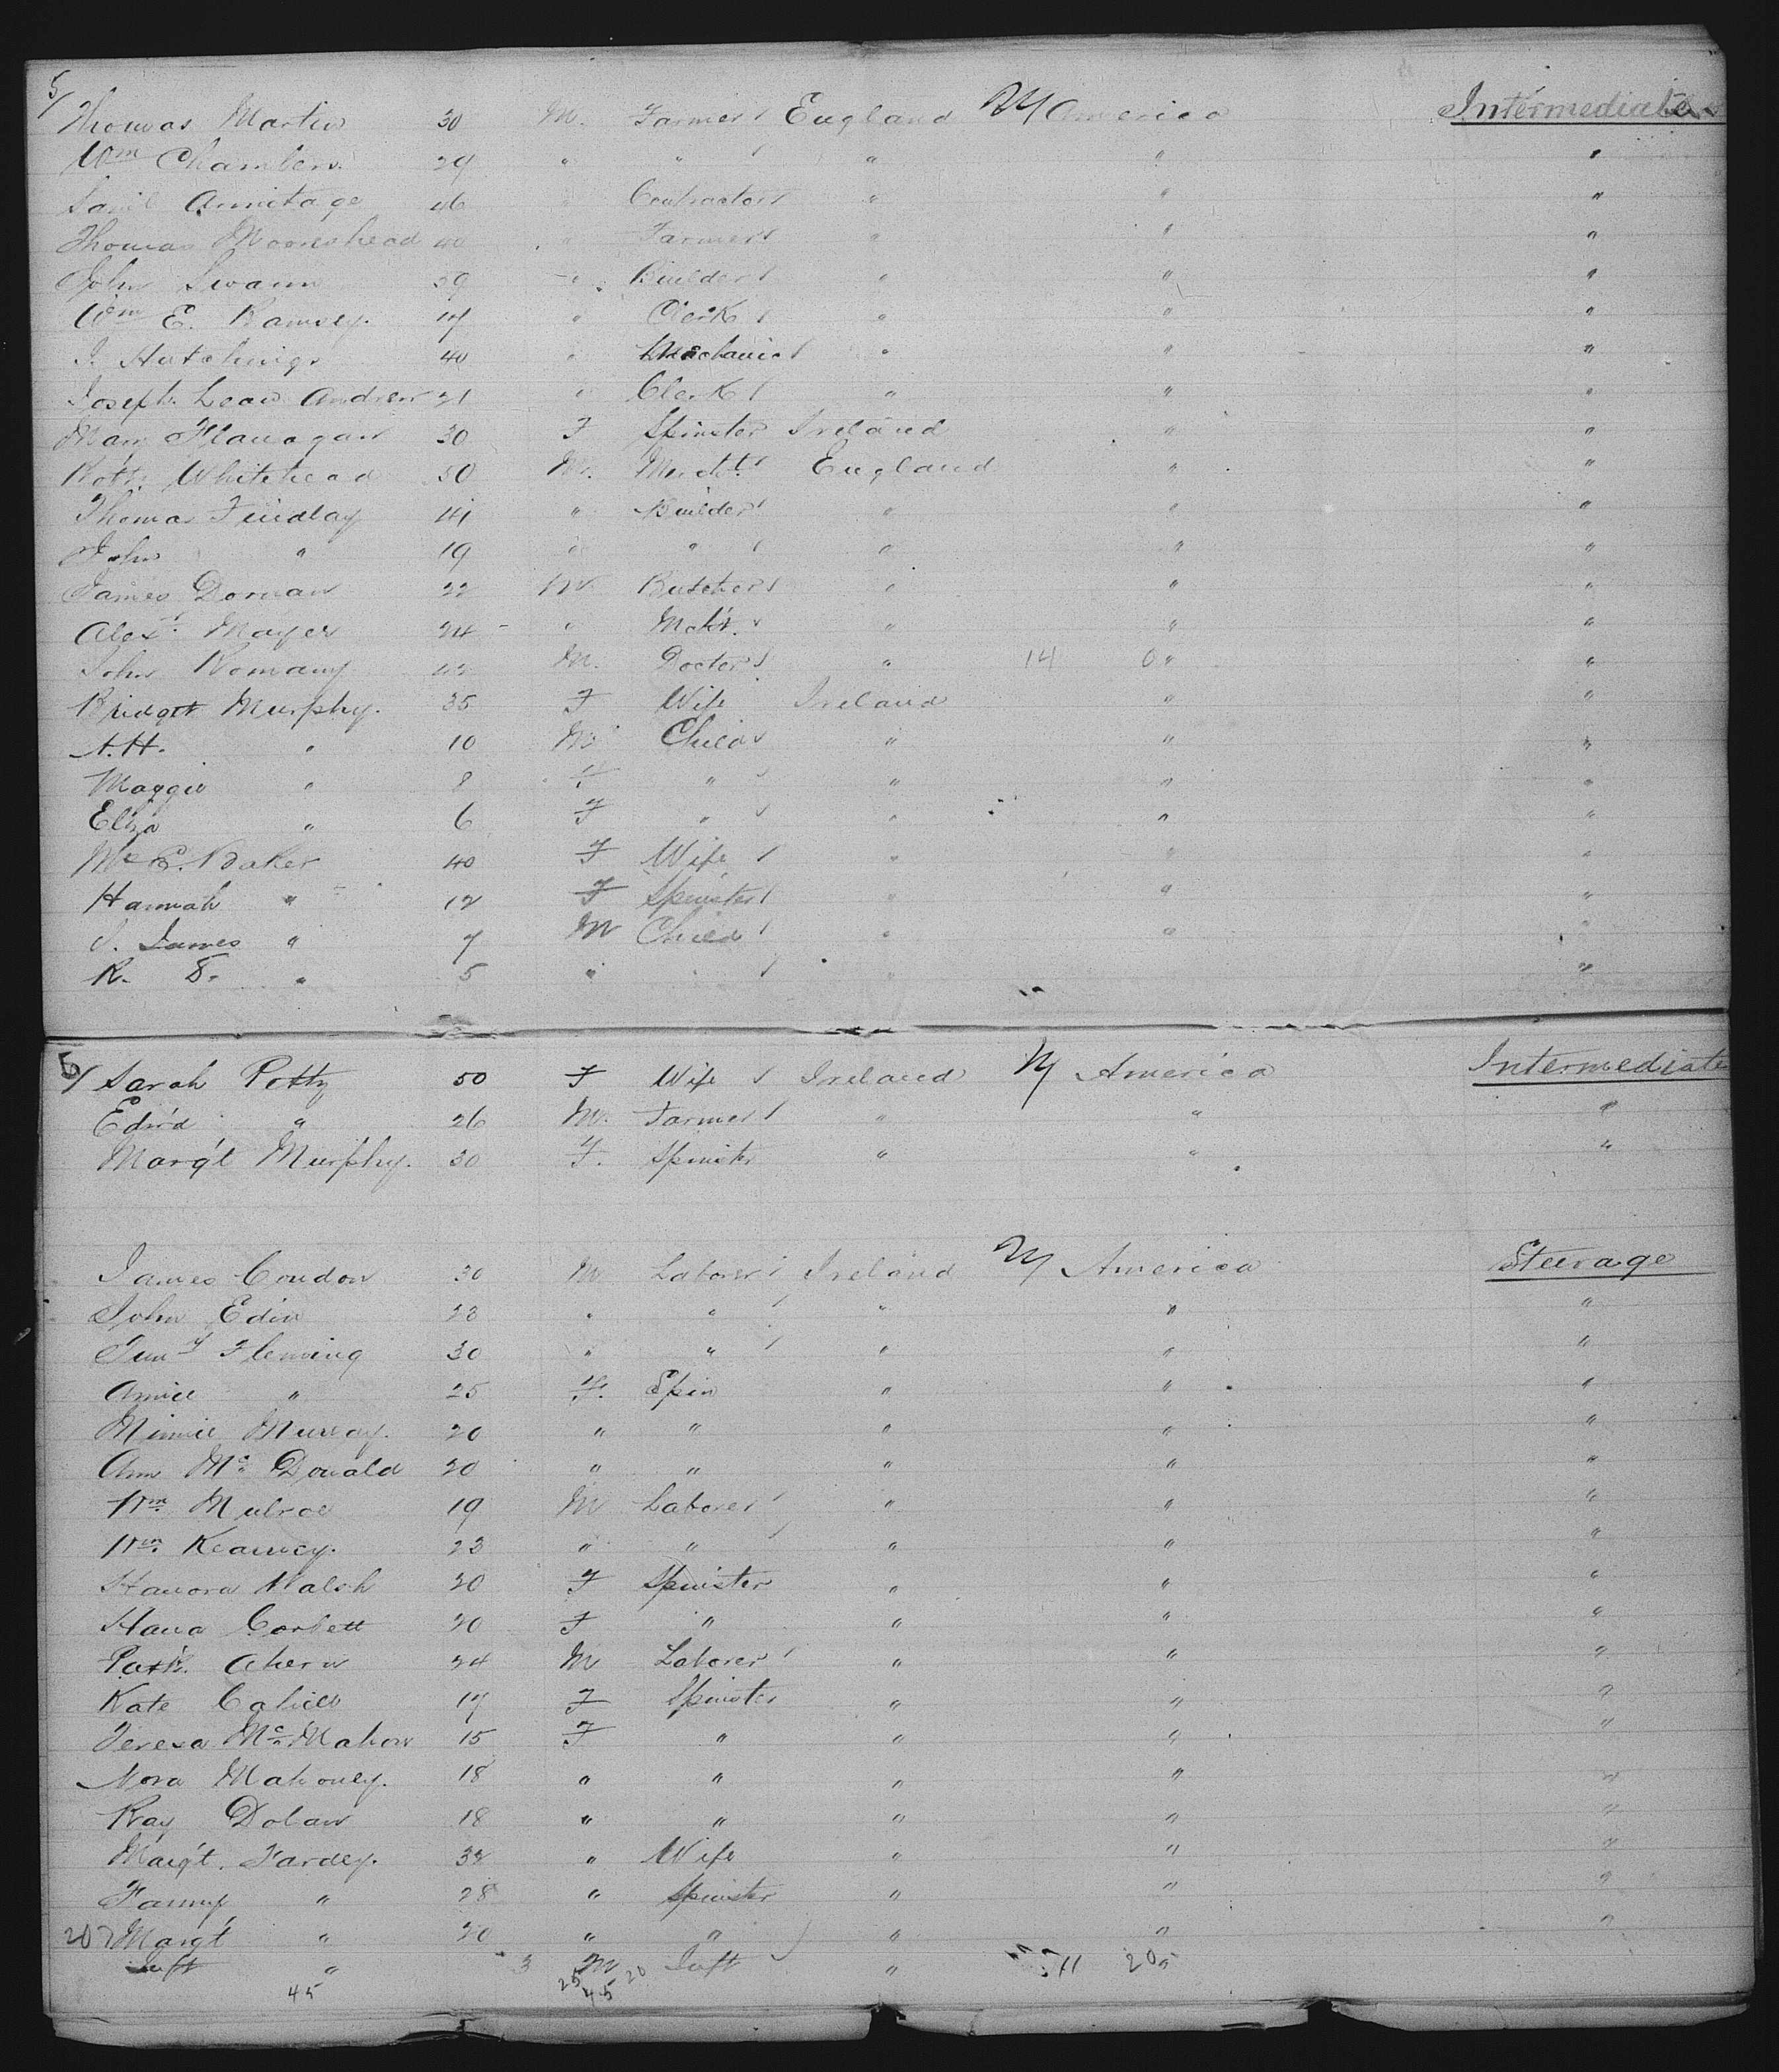 5/
Thomas Martin 30 M. Farmer England NY America Intermediate
Wm Chambers. 29 " " " " "
Saml Armitage 46 " Contractor " " "
Thomas Mooreshead 40 " Farmer " " "
John Swann 39 " Builder " " "
Wm E. Ramsey. 17 " Clerk " " "
J. Hutchings 40 " Mechanic " " "
Joseph Andrew 21 " Clerk " " "
Mary Flanagan 30 F Spinster Ireland " "
Robt. Whitehead 30 M. Mercht. England " "
Thomas Findlay 41 " Builder " " "
John " 19 " " " " "
James Dornan 22 M Butcher " " "
Alexr. Mayer 24 " Mcht. " " "
John Romany M. Doctor " 14 0 " "
Bridget Murphy. 35 F Wife Ireland " "
A.H. " 10 M Child " " "
Maggie " 8 F. " " " "
Eliza " 6 F " " " "
Baker 40 F Wife " " "
Hannah " 12 F Spinster " " "
S. James " 7 M Child " " "
R. S. " 5 " " " "
6/ Sarah Potty 50 F Wife Ireland NY America Intermediate
Edw'd " 26 M. Farmer " " "
Marg't Murphy. 30 F. Spinster " " "
James Condon 30 M Laborer Ireland NY America Steerage
John Edin 23 " " " " "
Timy Fleming 30 " " " " "
Annie " 25 F. Spin " " "
Minnie Murray. 20 " " " " "
Ann Mc Donald 20 " " " " "
Wm. Mulroe 19 M Laborer " " "
Wm. Kearney. 23 " " " " "
Hanora Walsh 20 F Spinster " " "
Hana Corbett 20 F " " " "
Pat'k. Ahern 24 M Laborer " " "
Kate Cahill 17 F Spinster " " "
Teresa McMahon 15 F " " " "
Nora Mahoney. 18 " " " " "
Kay Dolan 18 " " " " "
Marg't. Fardey. 32 " Wife " " "
Fanny " 28 " Spinster " " "
207 Marg't " 20 " " " " "
Inft " 3 M Inft " 11 20 "
45 25 20
45